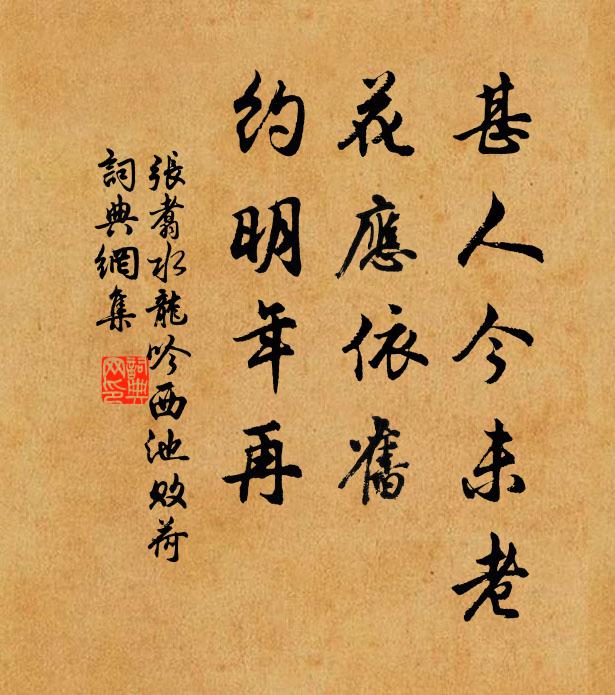 甚人今未老
花應依舊
約明年再
張翥水龍吟西池敗荷
詞典網集
詞典網印